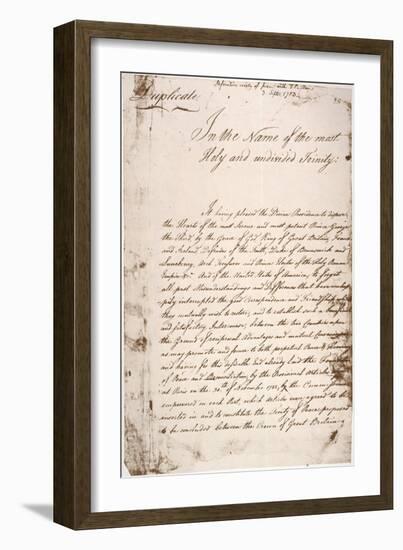 Definitive treaty of peace with G. Britain
3 Sept. 1783
Duplicate.
In the Name of the most
Holy and undivided Trinity.
It having pleased the Divine Providence to dispose
the Hearts of the most Serene and most potent Prince George
the Third, by the Grace of God King of Great Britain, France
and Ireland, Defender of the Faith, Duke of Brunswick and
Lunebourg, Arch Treasurer and Prince Elector of the Holy Roman
Empire &c. And of the United States of America, to forget
all past Misunderstandings and Differences that have unhap-
pily interrupted the good Correspondence and Friendship which
they mutually wish to restore; and to establish such a beneficial
and satisfactory Intercourse between the two Countries upon
the Ground of reciprocal Advantages and mutual Convenience
as may promote and secure to both perpetual Peace & Harmony
and having for this desirable End already laid the Foundation
of Peace and Reconciliation by the Provisional Articles signed
at Paris on the 30th of Novemr 1782, by the Commissioners
empowered on each Part, which Articles were agreed to be
inserted in and to constitute the Treaty of Peace proposed
to be concluded between the Crown of Great Britain